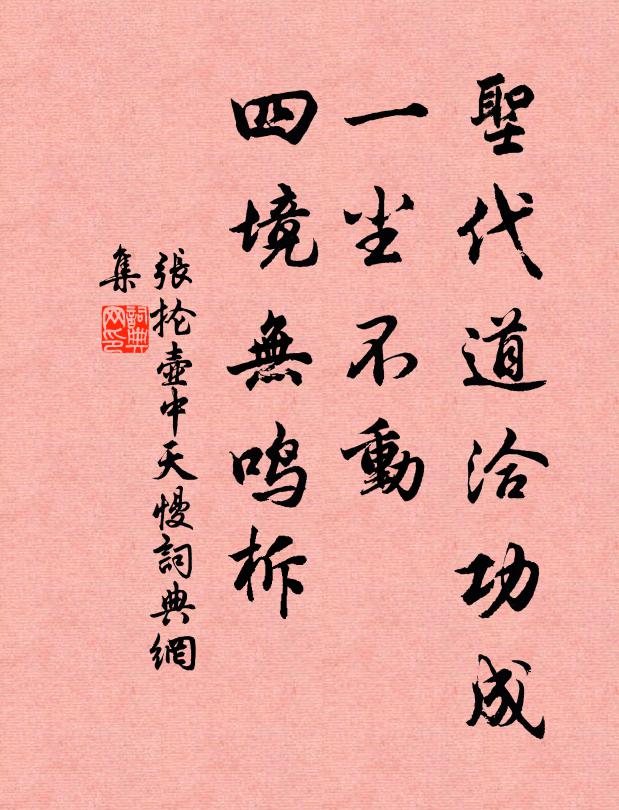 聖代道洽功成
一尘不動
四境無鳴柝
張抡壺中天慢詞典網
集
詞典
网印